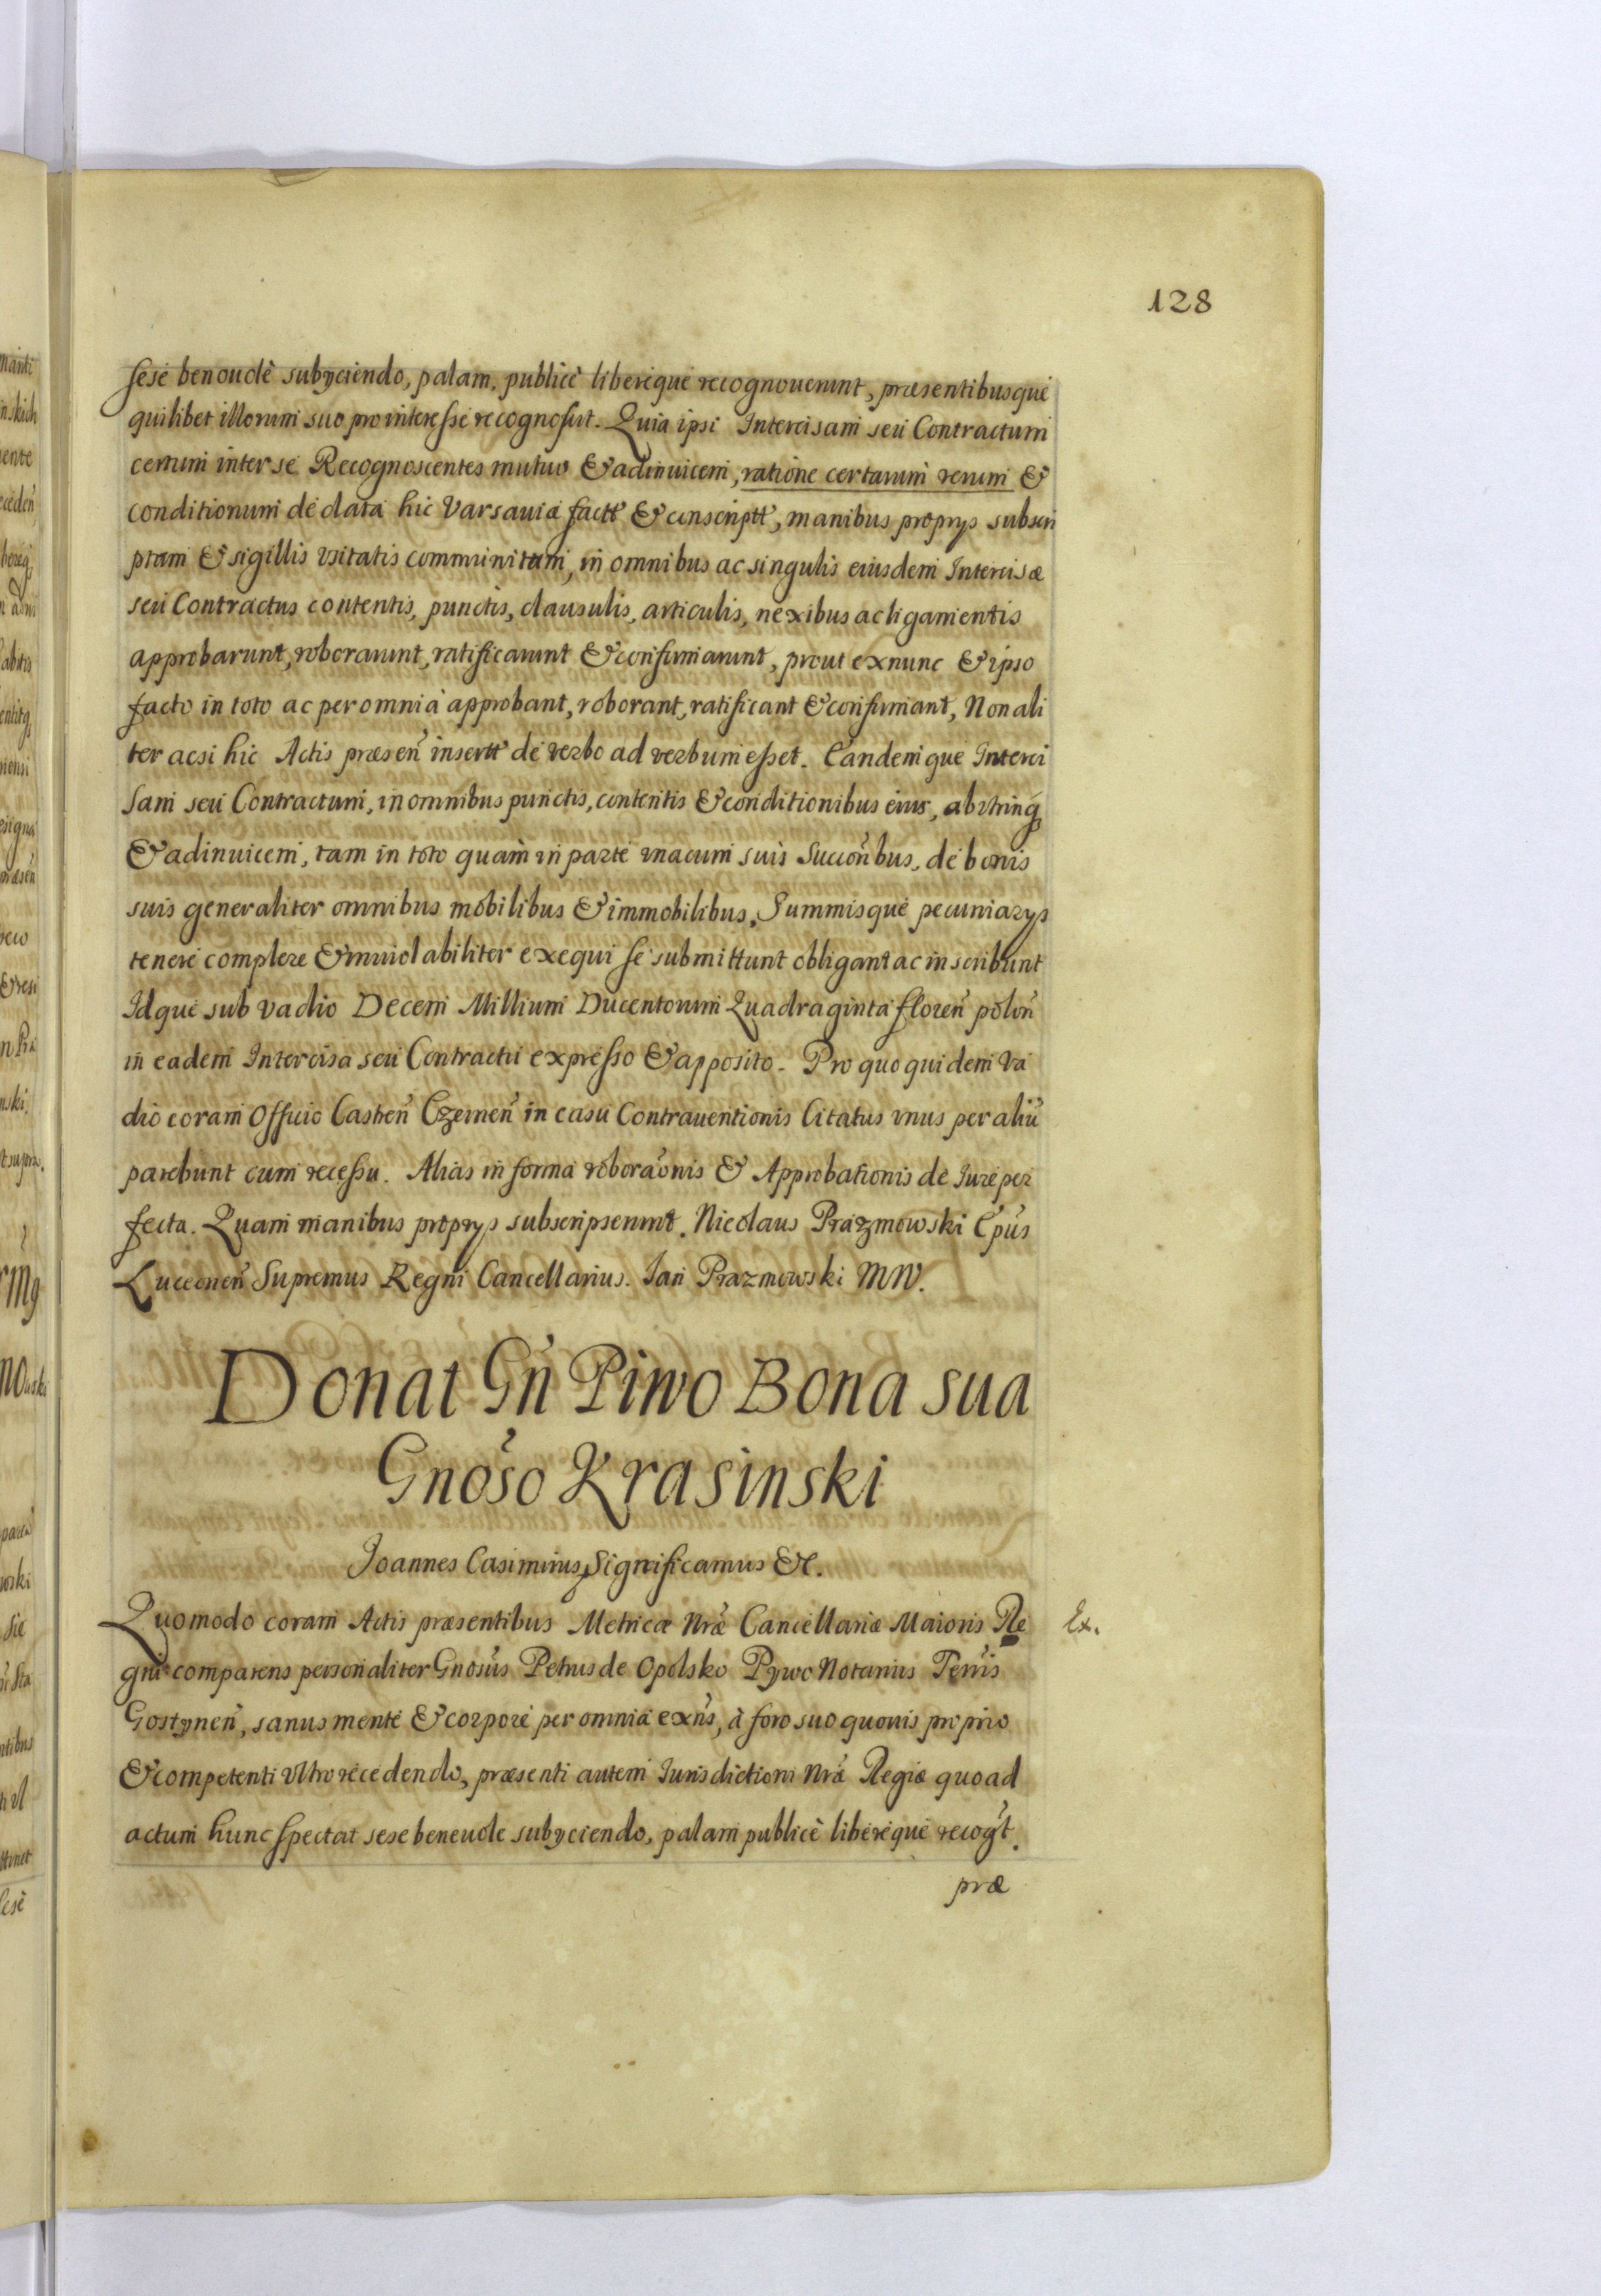 128
sese beneuolè subijciendo, palam, publicè liberèque recognouerunt, præsentibusque
quilibet illorum suo pro interesse recognoscit. Quia ipsi Intercisam seu Contractum
certum inter se Recognoscentes mutuo & adinuicem, ratione certarum rerum &
conditionum de data hic Varsauiæ factt & conscriptt, manibus proprijs subscri
ptam & sigillis vsitatis communitam, in omnibus ac singulis eiusdem Intercisæ
seu Contractus contentis, punctis, clausulis, articulis, nexibus ac ligamentis
approbarunt, roborarunt, ratificarunt & confirmarunt, prout exnunc & ipso
facto in toto ac per omnia approbant, roborant, ratificant & confirmant, Non ali
ter acsi hic Actis præsen̄ insertt de verbo ad verbum esset. Eandemque Interci
sam seu Contractum, in omnibus punctis, contentis & conditionibus eius, ab vtrinq̃
& adinuicem, tam in toto quam in parte vnacum suis Succōribus, de bonis
suis generaliter omnibus mobilibus & immobilibus, Summisque pecuniarijs
tenere complere & inuiolabiliter exequi se submittunt obligant ac inscribunt
Idque sub vadio Decem Millium Ducentorum Quadraginta floren̄ polōn
in eadem Intercisa seu Contractu expresso & apposito. Pro quo quidem Va
dio coram Officio Castren̄ Czernen̄ in casu Contrauentionis Citatus vnus per aliū
parebunt cum recessu. Alias in forma roboraōnis & Approbationis de Iure per
fecta. Quam manibus proprijs subscripserunt. Nicolaus Prażmowski Ep̃us
Luceonen̄ Supremus Regni Cancellarius. Jan Prazmowski MW.
Donat Gn̄ Piwo Bona sua
Gnõso Krasinski
Joannes Casimirus Significamus &c.
Quomodo coram Actis præsentibus Metricæ Nræ Cancellariæ Maioris Re
Ex.
gni comparens personaliter Gnosūs Petrus de Opolsko Pywo Notarius Terrīs
Gostynen̄, sanus mente & corpore per omnia exn̄s, à foro suo quouis proprio
& competenti vltro recedendo, præsenti autem Iurisdictioni Nræ Regiæ quoad
actum hunc spectat sese beneuole subijciendo, palam publicè liberèque recog̃t.
præ